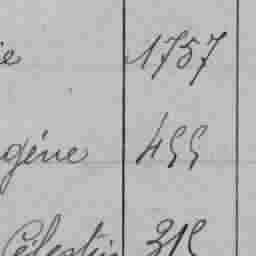 ie 1757
gène 455
Célestin 315